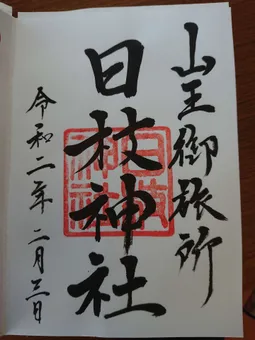 山王御旅所
日枝神社
令和二年二月三日
日枝神社